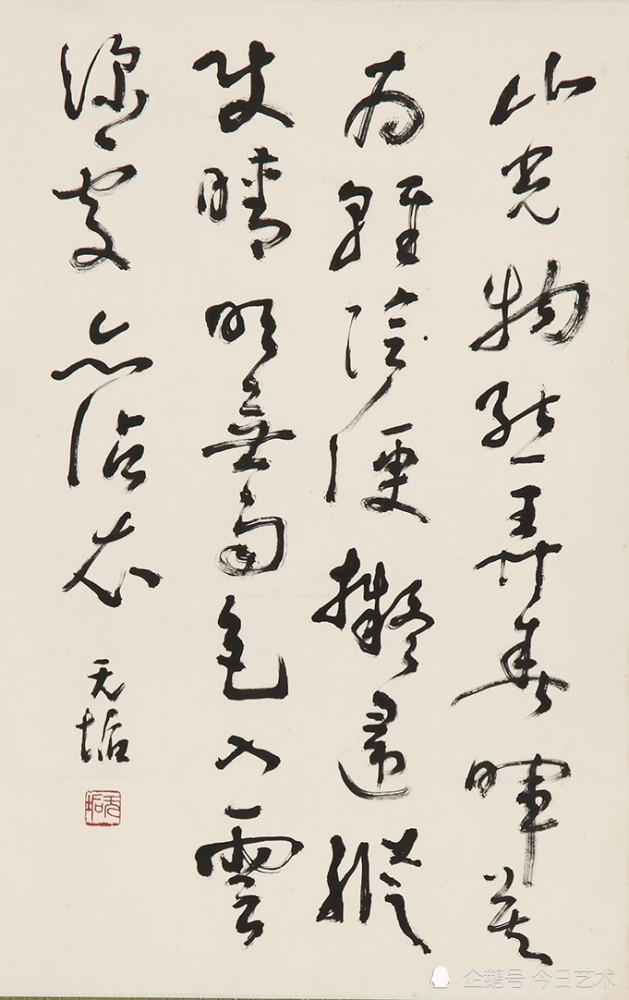 山光物態弄春暉莫
為輕陰便擬歸縱
使晴明無雨色入雲
深處亦沾衣
无垢
无垢
企鹅号 今日艺术